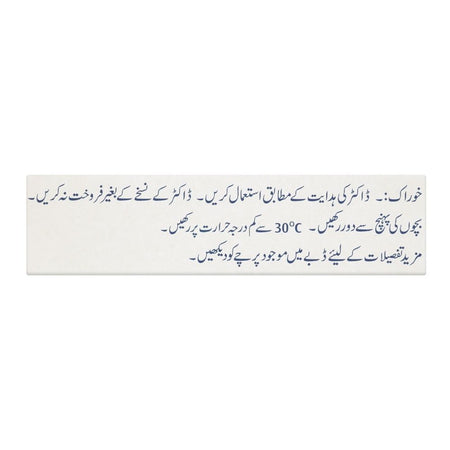 خوراک:۔ ڈاکٹر کی ہدایت کے مطابق استعمال کریں۔ ڈاکٹر کے نسخے کے بغیر فروخت نہ کریں۔
بچوں کی پہنچ سے دور رکھیں۔ 30°C سے کم درجہ حرارت پر رکھیں۔
مزید تفصیلات کے لیئے ڈبے میں موجود پرچے کو دیکھیں۔